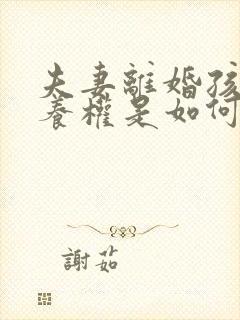 夫妻離婚孩
養權是如何
謝茹